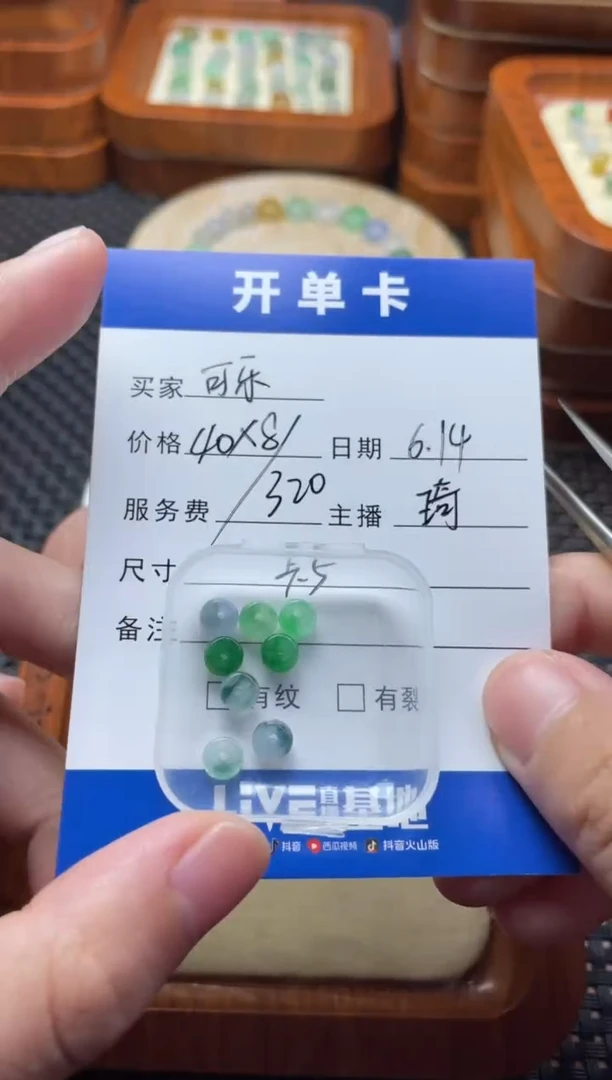 开单卡
买家 可乐
价格 40×8/ 日期 6.14
服务费 320 主播 琦
尺寸 5.5
备注
有纹 有裂
LIVE 直播基地
抖音 西瓜视频 抖音火山版